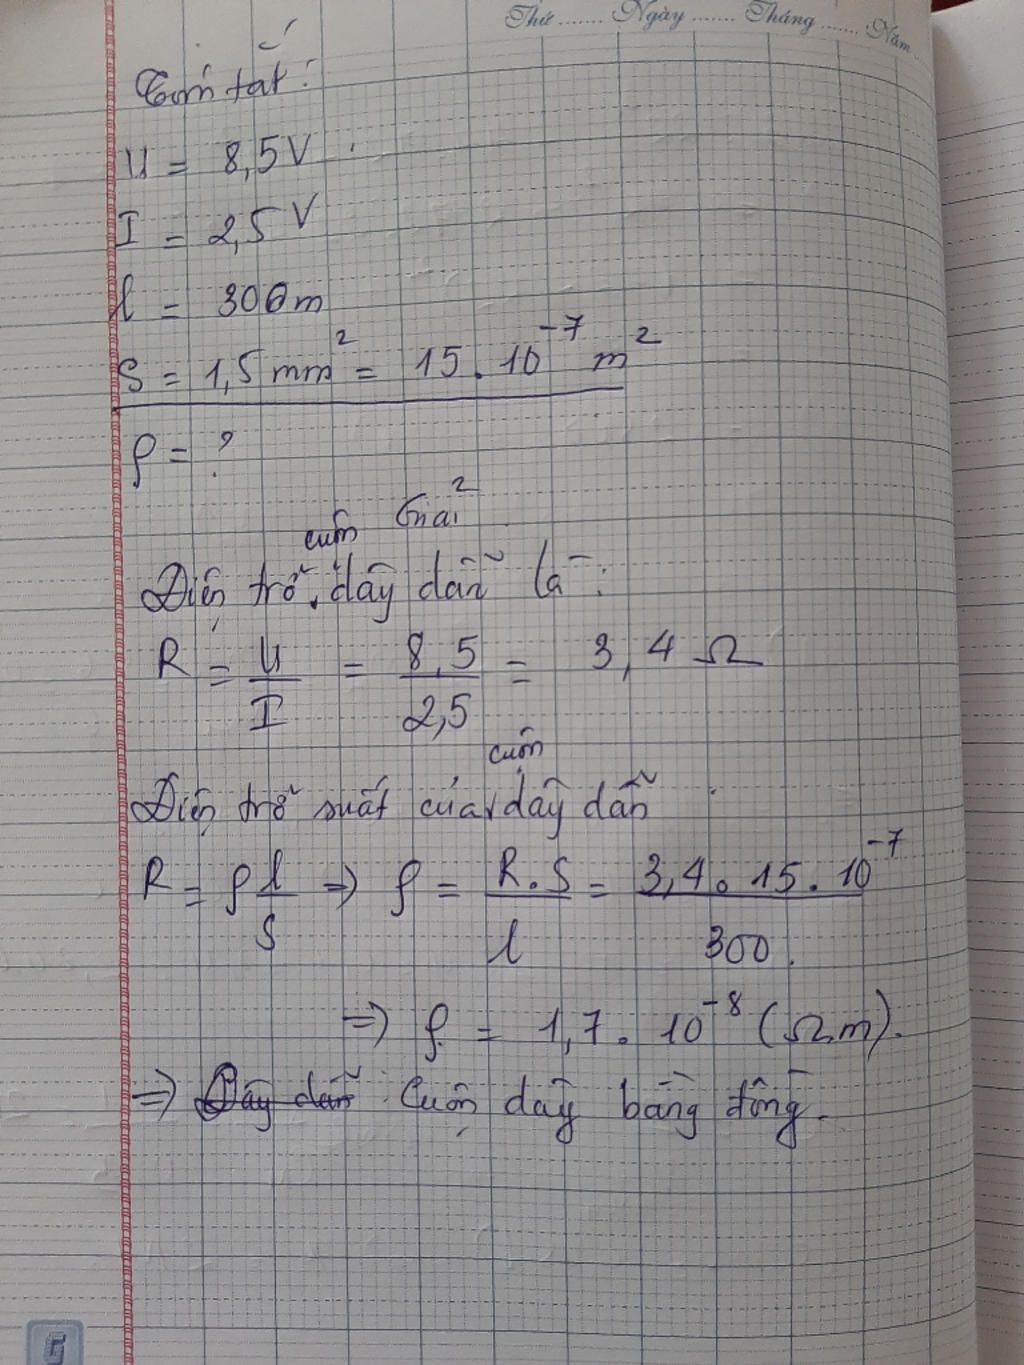 Thứ ....... Ngày ....... Tháng ....... Năm
Tóm tắt :
U = 8,5 V
I = 2,5 V
l = 300m
S = 1,5 mm² = 15 . 10⁻⁷ m²
ρ = ?
Giải
Điện trở cuộn dây dẫn là :
R = U/I = 8,5/2,5 = 3,4 Ω
Điện trở suất của cuộn dây dẫn
R = ρ l/S => ρ = R.S/l = 3,4 . 15 . 10⁻⁷/300
=> ρ = 1,7 . 10⁻⁸ (Ω.m).
=> Dây dẫn Cuộn dây bằng đồng.
G